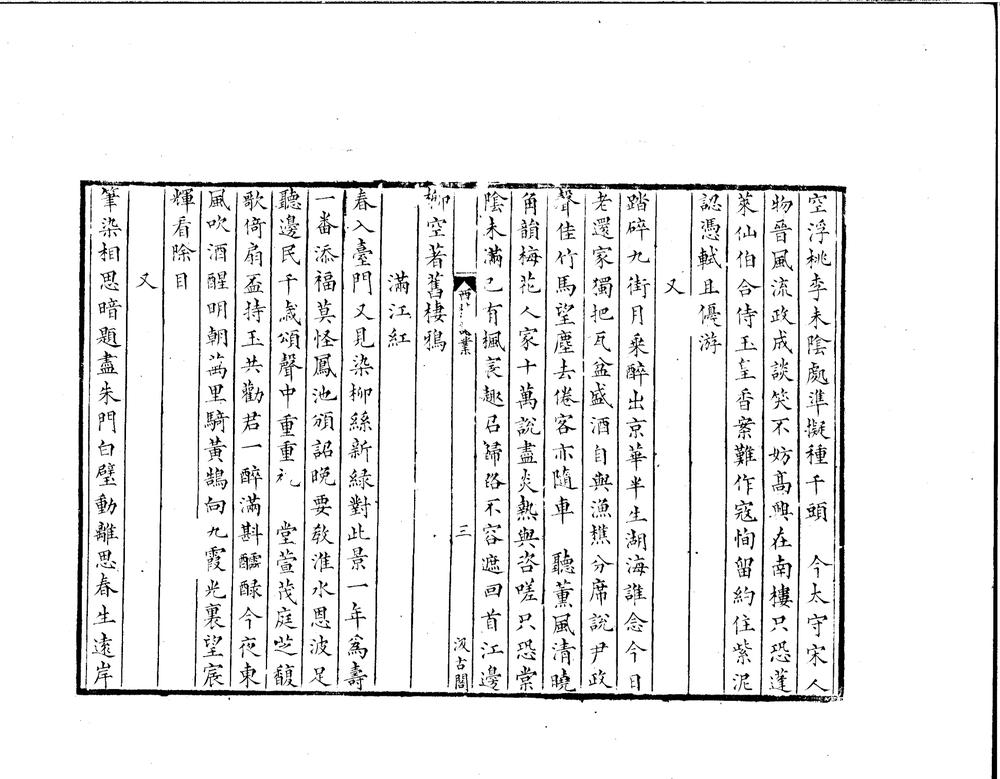 空浮桃李未陰處準擬種千頭　今太守宋人
物晉風流政成談笑不妨高興在南樓只恐蓬
萊仙伯合侍玉皇香案難作寇恂留約住紫泥
認憑軾且優游
又
踏碎九街月乘醉出京華半生湖海誰念今日
老還家獨把瓦盆盛酒自與漁樵分席說尹政
聲佳竹馬望塵去倦客亦隨車　聽薰風清曉
角韻梅花人家十萬說盡炎熱與咨嗟只恐棠
陰未滿已有楓宸趣召歸路不容遮回首江邊
柳空著舊棲鴉
滿江紅
春入臺門又見染柳絲新綠對此景一年爲壽
一番添福莫怪鳳池頒詔晚要教淮水恩波足
聽邊民千歲頌聲中重重祝　堂萱茂庭芝馥
歌倚扇盃持玉共勸君一醉滿斟醽醁今夜東
風吹酒醒明朝萬里騎黃鵠向九霞光裏望宸
輝看除目
又
筆染相思暗題盡朱門白壁動離思春生遠岸
三
汲古閣